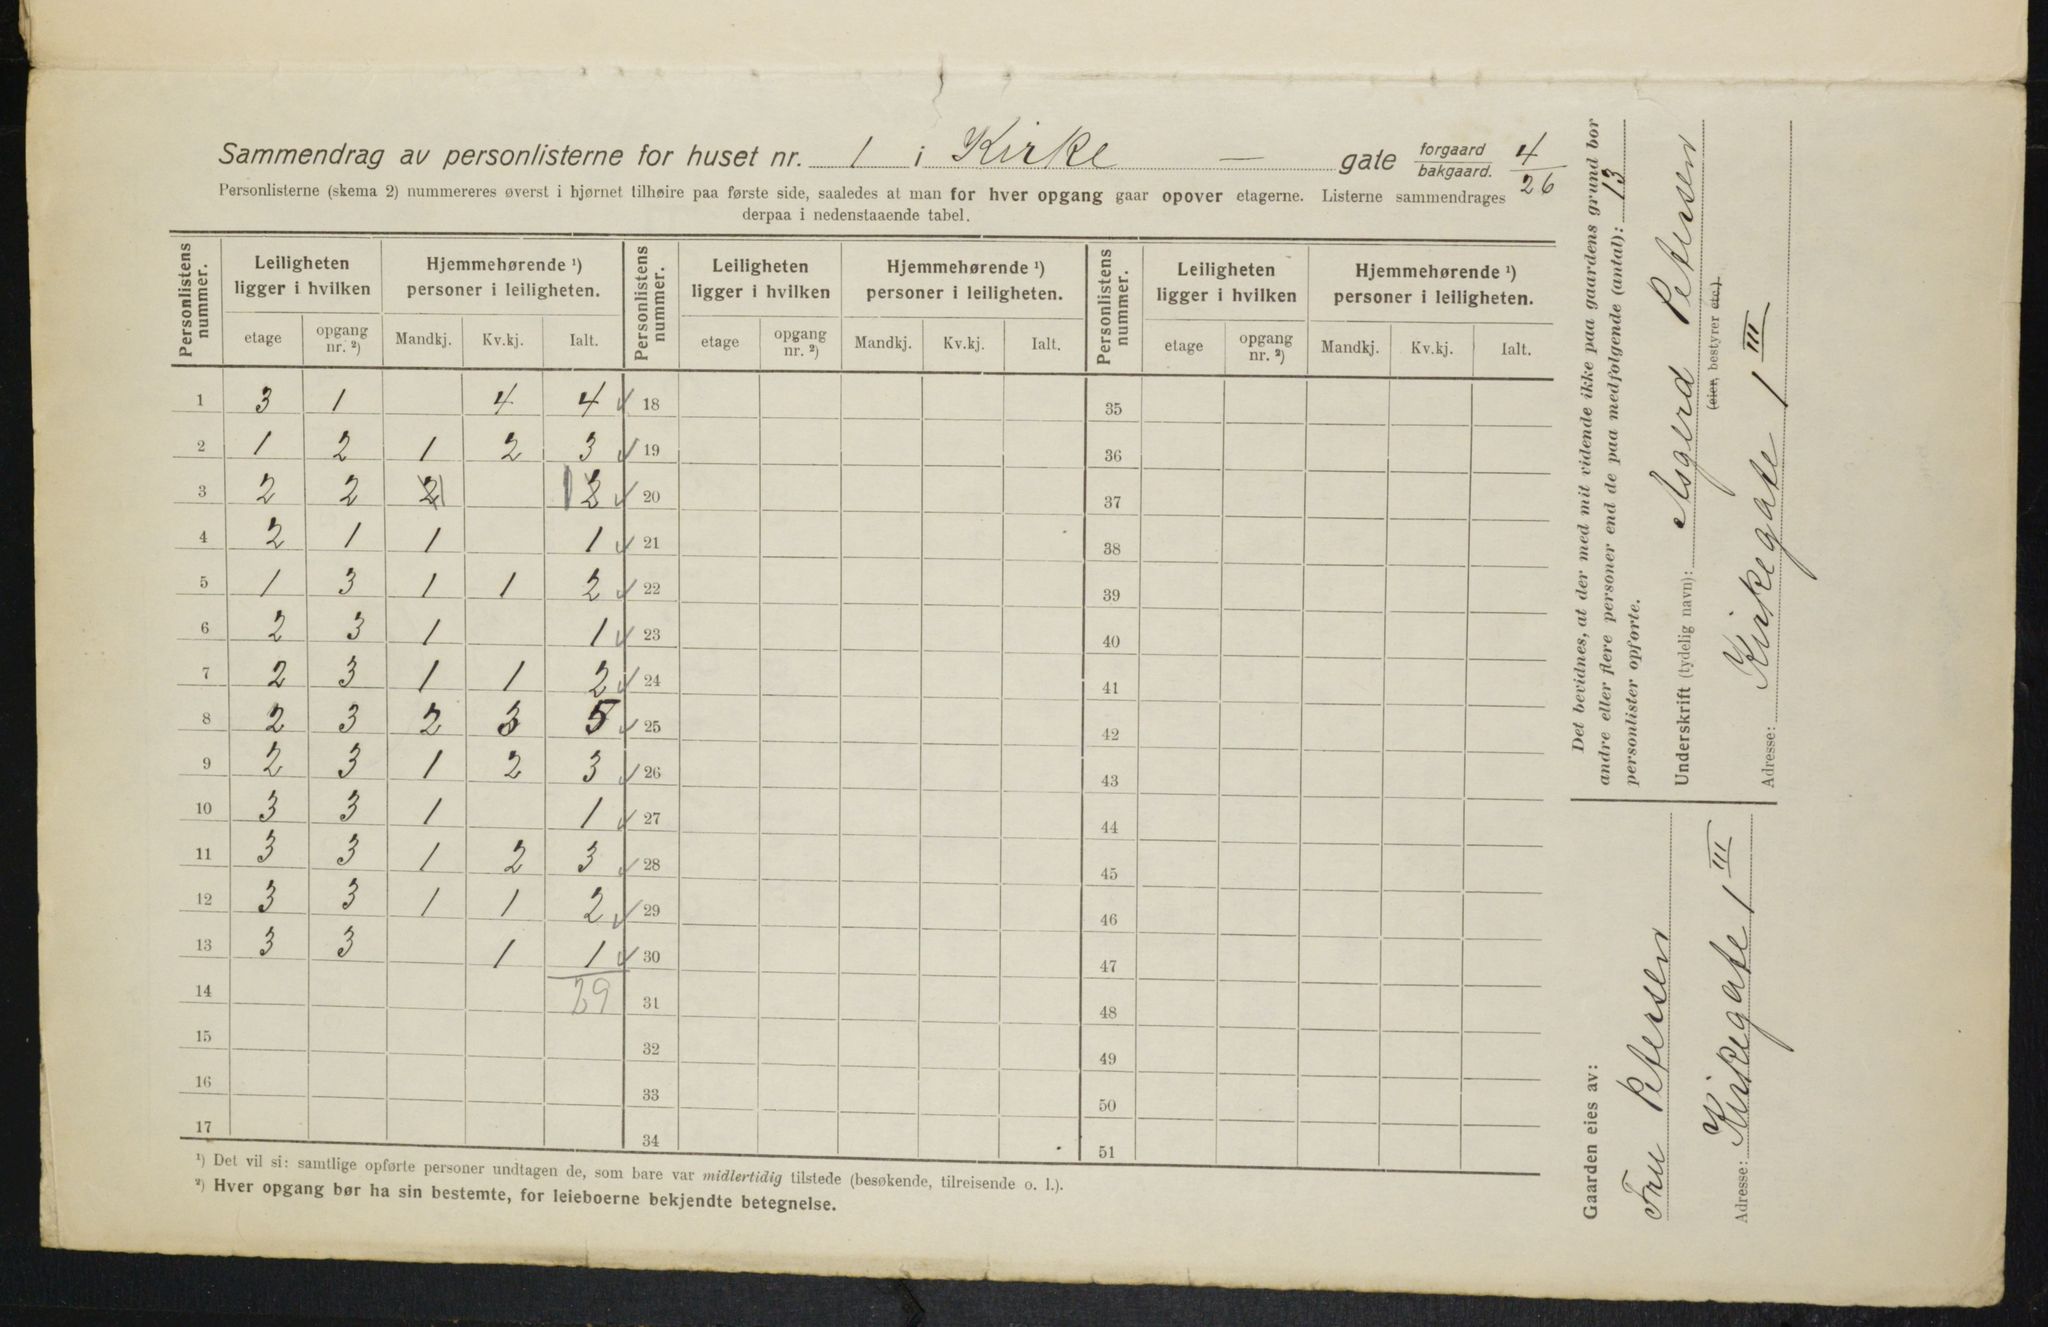 Sammendrag av personlisterne for huset nr. 1 i Kirke — gate forgaard/bakgaard. 4/26
Personlisterne (skema 2) nummereres øverst i hjørnet tilhøire paa første side, saaledes at man for hver opgang gaar opover etagerne. Listerne sammendrages
derpaa i nedenstaaende tabel.
Personlistens nummer. Leiligheten ligger i hvilken Hjemmehørende ¹) personer i leiligheten. Personlistens nummer. Leiligheten ligger i hvilken Hjemmehørende ¹) personer i leiligheten. Personlistens nummer. Leiligheten ligger i hvilken Hjemmehørende ¹) personer i leiligheten.
etage opgang nr. ²) Mandkj. Kv.kj. Ialt. etage opgang nr. ²) Mandkj. Kv.kj. Ialt. etage opgang nr. ²) Mandkj. Kv.kj. Ialt.
1 3 1 4 4 ✓ 18 35
2 1 2 1 2 3 ✓ 19 36
3 2 2 2 1 1 2 ✓ 20 37
4 2 1 1 1 ✓ 21 38
5 1 3 1 1 2 ✓ 22 39
6 2 3 1 1 ✓ 23 40
7 2 3 1 1 2 ✓ 24 41
8 2 3 2 3 5 ✓ 25 42
9 2 3 1 2 3 ✓ 26 43
10 3 3 1 1 ✓ 27 44
11 3 3 1 2 3 ✓ 28 45
12 3 3 1 1 2 ✓ 29 46
13 3 3 1 1 ✓ 30 47
14 29 31 48
15 32 49
16 33 50
17 34 51
¹) Det vil si: samtlige opførte personer undtagen de, som bare var midlertidig tilstede (besøkende, tilreisende o. l.).
²) Hver opgang bør ha sin bestemte, for leieboerne bekjendte betegnelse.
Det bevidnes, at der med mit vidende ikke paa gaardens grund bor
andre eller flere personer end de paa medfølgende (antal): 13
personlister opførte.
Underskrift (tydelig navn): Asgerd Petersen
(eier, bestyrer etc.).
Adresse: Kirkegate 1 III
Gaarden eies av:
Fru Petersen
Adresse: Kirkegate 1 III